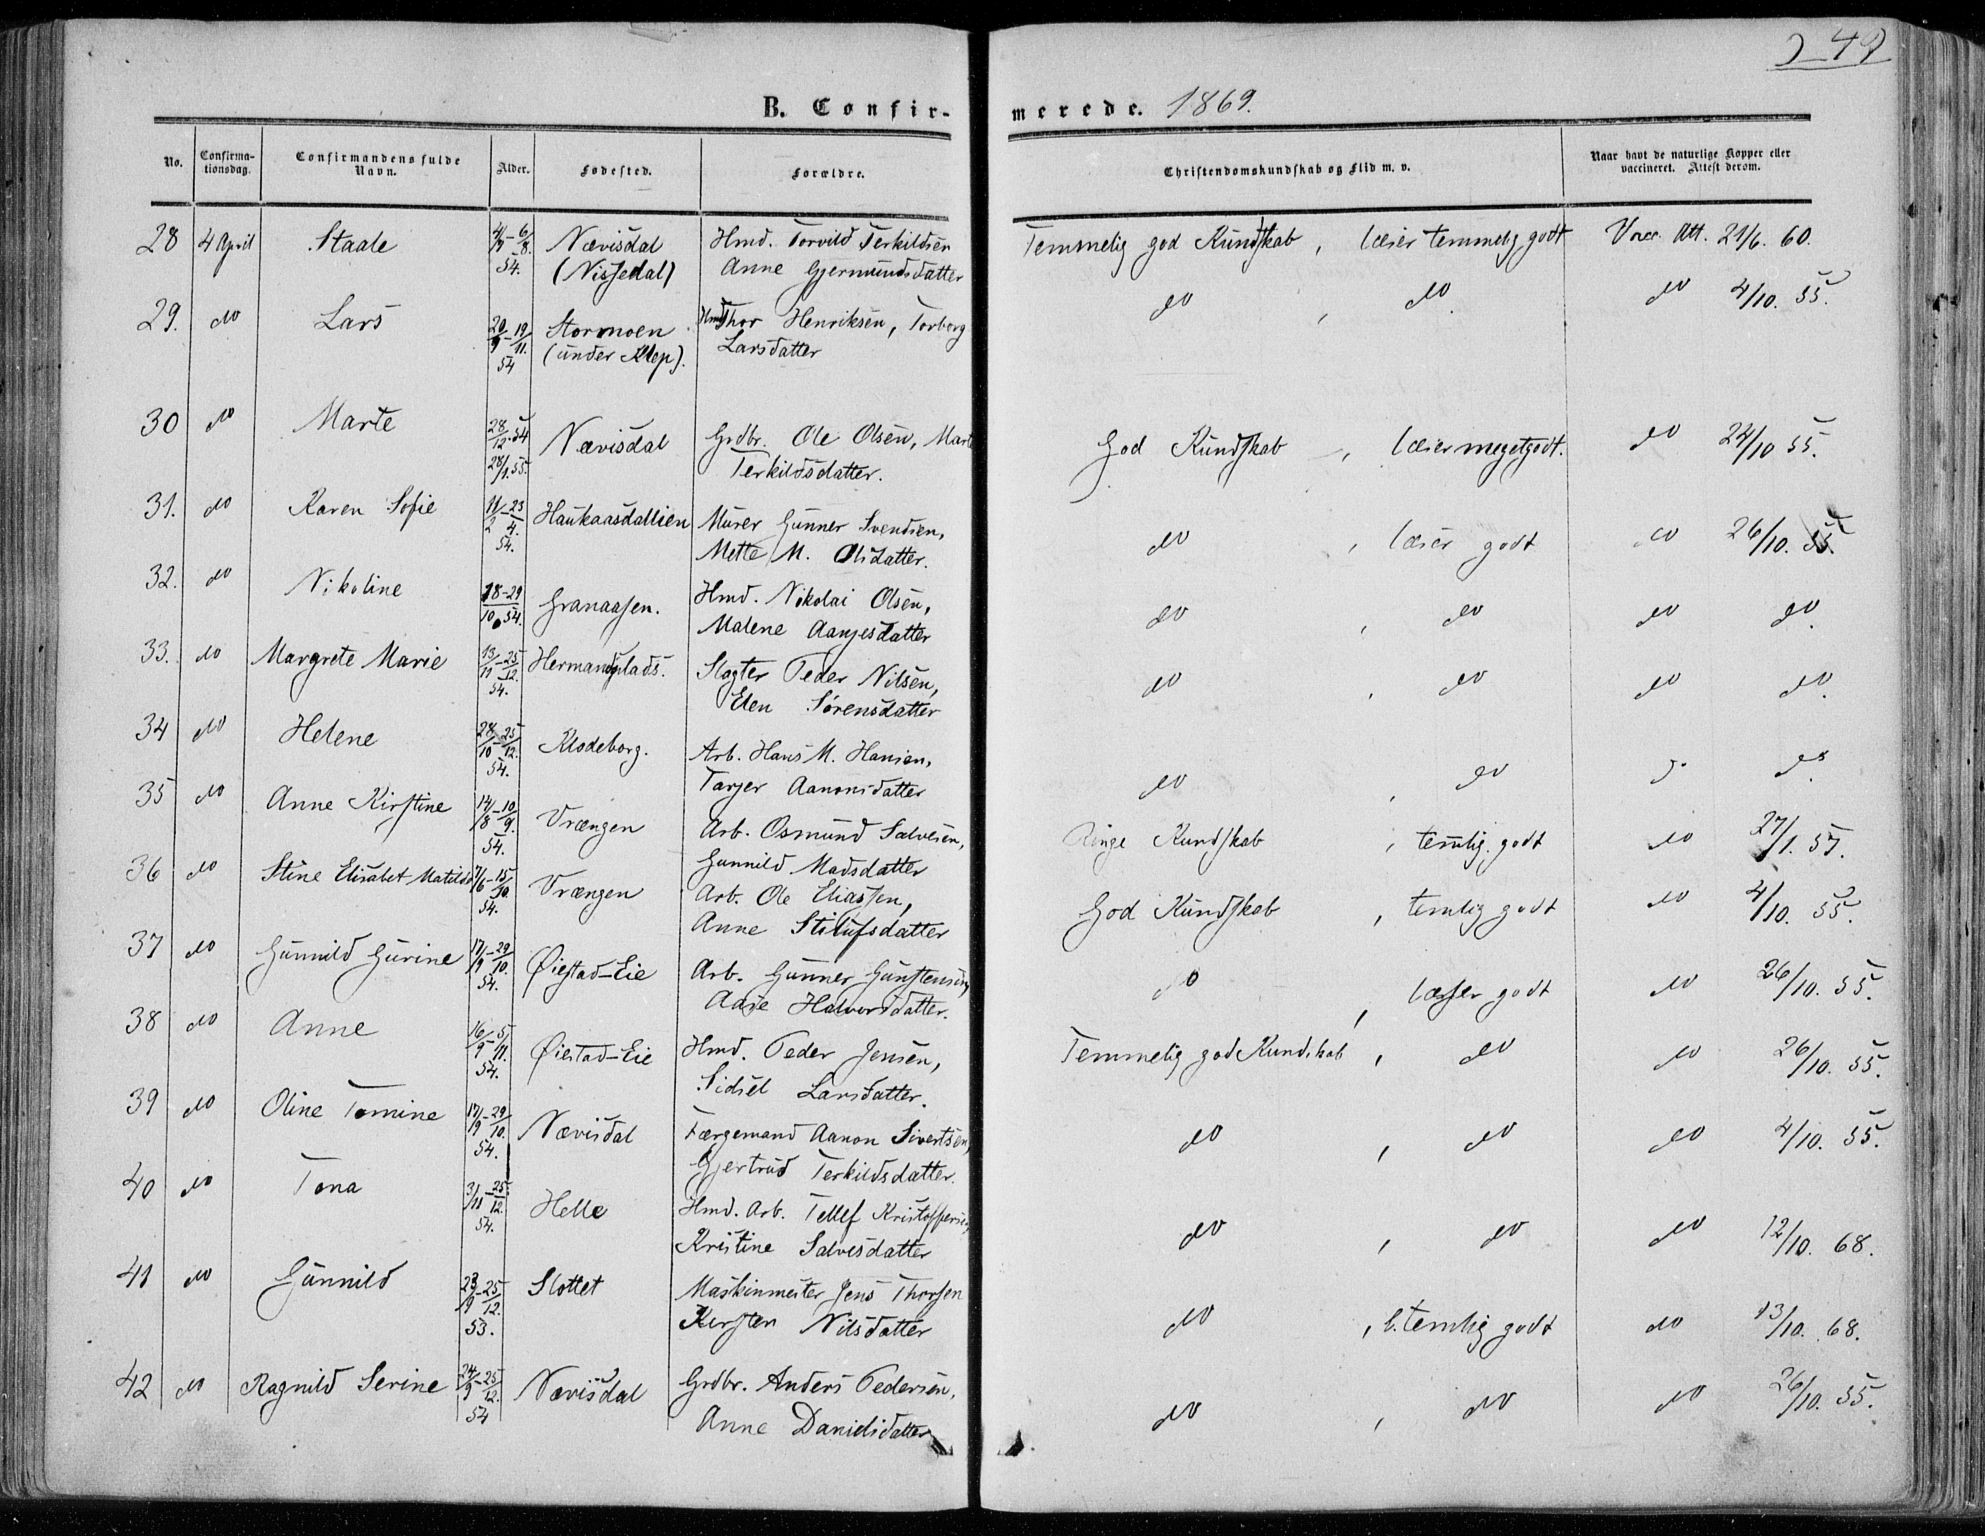 249
B. Confirmerede. 1869.
No. Confirmationsdag. Confirmandens fulde Navn. Alder. Fødested. Forældre. Christendomskundskab og Flid m. v. Naar havt de naturlige Kopper eller vaccineret. Attest derom.
28 4 April Staale 4/9-6/8. 54. Nævisdal (Nissedal) Hmd. Torvild Terkildsen Anne Gjermundsdatter Temmelig god Kundskab, læser temmelig godt Vacc. Att. 21/6. 60.
29. do Lars 20/9-19/11. 54 Stormoen (under Klep). Hmd Thor Henriksen, Torborg Larsdatter do, do. do 4/10. 55.
30 do Marte 28/12.54 28/1.55. Nævisdal Grdbr. Ole Olsen, Marte Terkildsdatter. God Kundskab, læser meget godt. do 24/10 55.
31. do Karen Sofie 11/2-23/4. 54. Haukaasdallien Murer Gunner Svendsen, Mette M. Olsdatter. do, læser godt do 26/10. 55.
32. do Nikoline 18-29/10 54. Granaasen. Hmd. Nikolai Olsen, Malene Aanjesdatter do, do do do.
33. do Margrete Marie 13/11-25/12. 54. Hermandsplads. Slagter Peder Nilsen, Elen Sørensdatter do, do do do.
34 do Helene 28/10-25/12. 54. Klodeborg. Arb. Hans M. Hansen, Tarjer Aanonsdatter do, do do do.
35 do Anne Kirstine 14/8-10/9. 54. Vrængen Arb. Osmund Salvesen, Gunnild Madsdatter Ringe Kundskab, temlig godt do 27/1. 57.
36 do Stine Elisabet Matilde 7/6-15/10. 54. Vrængen Arb. Ole Eliassen, Anne Stilufsdatter God Kundskab, temlig godt do 4/10. 55.
37 do Gunnild Gurine 17/9-29/10. 54. Øiestad-Eie Arb. Gunner Gunstensen, Aase Halvorsdatter. do, læser godt do 26/10. 55.
38 do Anne 16/9-5/11. 54. Øiestad-Eie Hmd. Peder Jensen, Sidsel Larsdatter. Temmelig god Kundskab, do do 26/10. 55.
39 do Oline Tomine 17/9-29/10. 54. Nævisdal Færgemand Aanon Sivertsen, Gjertrud Terkildsdatter. do, do do 4/10. 55.
40 do Tona 3/11-25/12 54. Helle Hmd. Arb. Tellef Kristoffersen, Kristine Salvesdatter do, do do 12/10. 68.
41 do Gunnild 23/9-25/12. 53. Slottet Maskinmester Jens Thorsen Kirsten Nilsdatter do, b. temlig godt do 13/10. 68.
42 do Ragnild Serine 24/9-25/12. 54 Nævisdal Grdbr. Anders Pedersen, Anne Danielsdatter do, do do 26/10. 55.